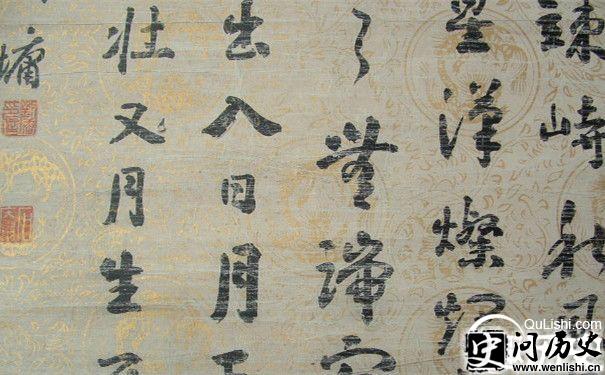 竦峙秋風
星漢燦爛
了無諦
出入日月
壯又月生
墉
QuLishi.com
问历史
www.wenlishi.cn